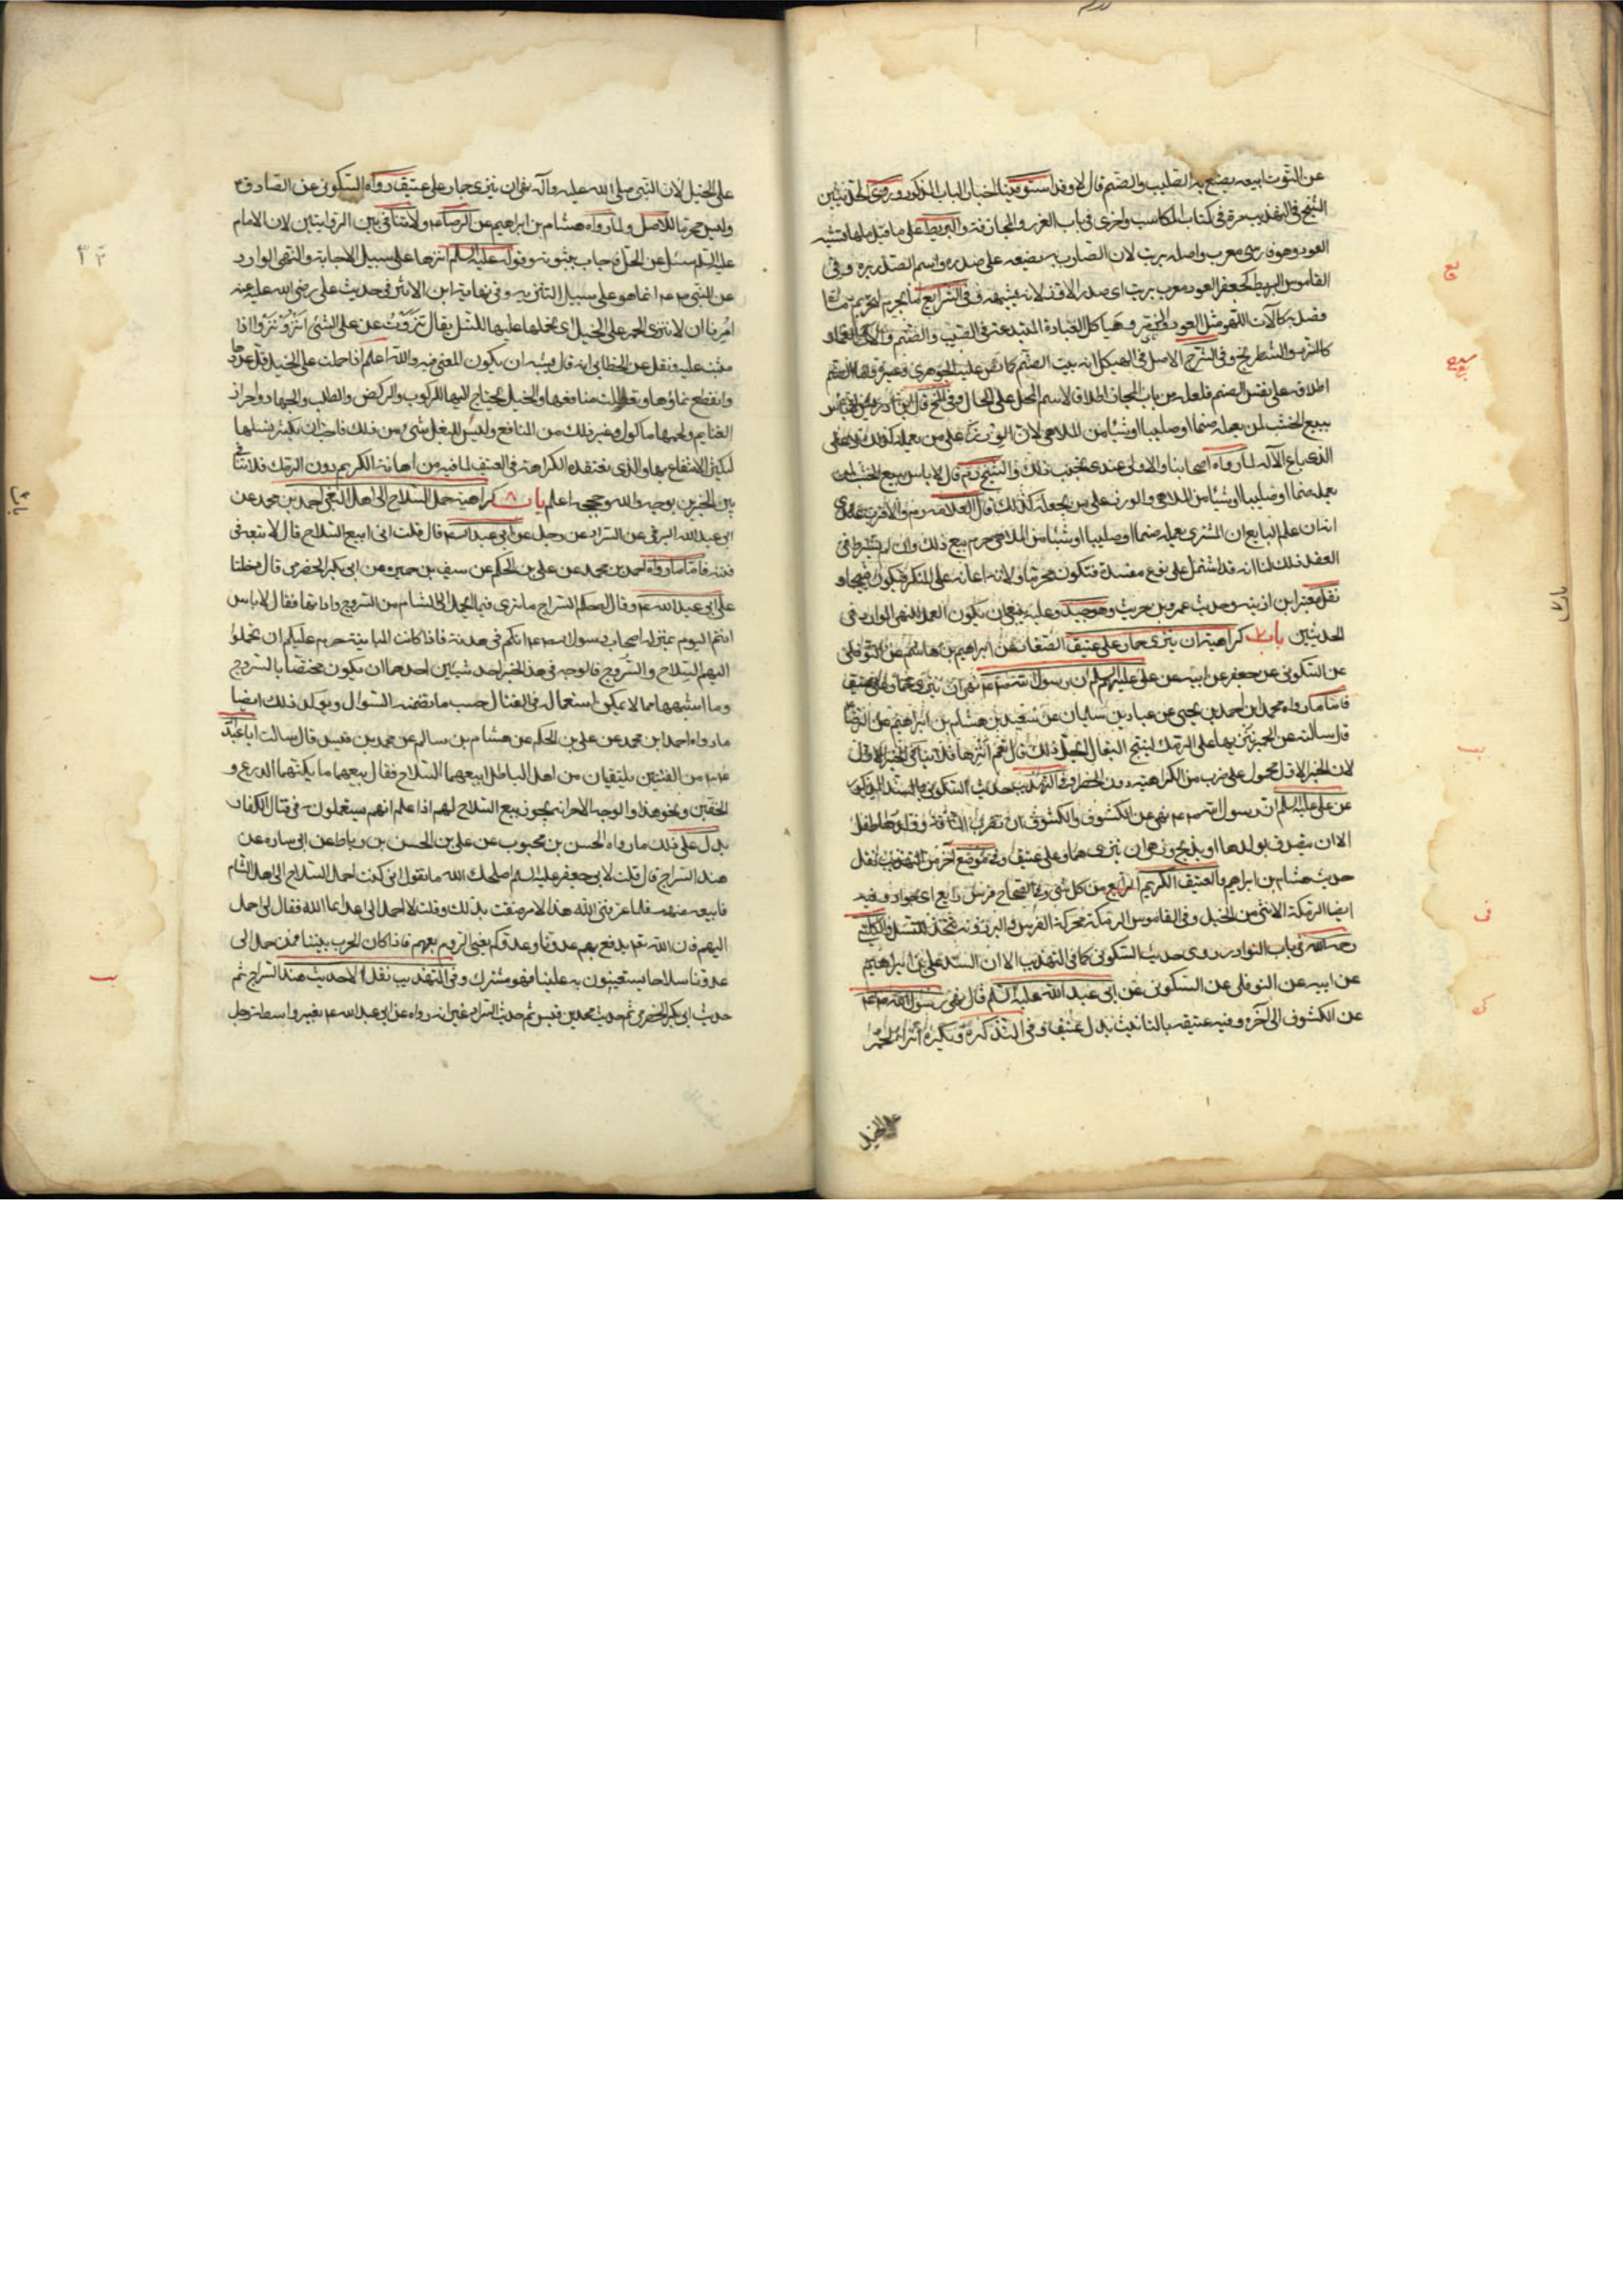 عن التوت ابيعه يصنع به الصليب والصنم قال لا وقد استوفينا الاخبار الباب المذكور وروى الحديثين
الشيخ في التهذيب مرة في كتاب المكاسب واخرى في باب الغرر والمجازفة والبربط على ما قيل ملهاة تشبه
العود وهو فارسي معرب واصله بربت لان الضارب به يضعه على صدره واسم الصدر بر وفي
القاموس البربط كجعفر العود معرب بربت اى صدر الاوز لانه يشبهه وفي الشرايع ما يحرم لتحريم ما
قصد به كآلات اللهو مثل العود والزمر وهياكل العبادة المبتدعة كالصليب والصنم وآلات القمار
كالنرد والشطرنج وفي الشرح الاصل في الهيكل انه بيت الصنم كما نص عليه الجوهرى وغيره واما
اطلاقه على نفس الصنم فلعله من باب المجاز اطلاقا لاسم المحل على الحال وفي قال ابن ادريس
بيع الخشب لمن يعمله صنما او صليبا او شيئا من الملاهى لان الوزر على من يعمله كذلك لا على
الذى باع الآلة لما رواه اصحابنا والاولى عندى تجنب ذلك والشيخ ره قال لا باس ببيع الخشب لمن
يعمله صنما او صليبا او شيئا من الملاهى والوزر على من يجعله كذلك قال العلامة ره والاقرب عندى
انه ان علم البايع ان المشترى يعمله صنما او صليبا او شيئا من الملاهى حرم بيع ذلك وان لم يشترط في
العقد ذلك لنا انه قد اشتمل على نوع مفسدة فتكون محرما ولانه اعانة على المنكر فيكون قبيحا و
نقل معتبر ابن اذينه وحديث عمرو بن حريث وهو جيد وعليه ينبغى ان يكون العمل للنهى الوارد في
الحديثين باب ٧ كراهية ان ينزى حمار على عتيق الصفار عن ابراهيم بن هاشم عن النوفلى
عن السكونى عن جعفر عن ابيه عن على عليهم السلام ان رسول الله ص نهى ان ينزى حمار على عتيق
فاما ما رواه محمد بن احمد بن يحيى عن عباد بن سليمان عن سعد بن هشام بن ابراهيم عن الرضا ع
قال سالته عن الحمير ننزيها على الرمك لتنتج البغال ايحل ذلك قال نعم انزها فلا ينافى الخبر الاول
لان الخبر الاول محمول على ضرب من الكراهية دون الحظر وفي التهذيب حديث السكونى بالسند المذكور
عن على عليه السلام ان رسول الله ص نهى عن الكشوف والكشوف ان تضرب الناقة وولدها طفل
الا ان يتصدق بولدها او يذبح ونهى ان ينزى حمار على عتيق وفي موضع آخر من التهذيب نقل
حديث هشام بن ابراهيم والعتيق الكريم الرايع من كل شئ وفي الصحاح فرس رايع اى جواد وفيه
ايضا الرمكة الانثى من الخيل وفي القاموس الرمكة محركة الفرس والبرذونة تتخذ للنسل والكلينى
رحمه الله في باب النوادر روى حديث السكونى كما في التهذيب الا ان السند على بن ابراهيم
عن ابيه عن النوفلى عن السكونى عن ابى عبد الله عليه السلام قال نهى رسول الله ص
عن الكشوف الى آخره وفيه عتيقه بالتانيث بدل عتيق وفي التذكرة ويكره انزاء الحمر
على الخيل
على الخيل لان النبى صلى الله عليه وآله نهى ان ينزى حمار على عتيق رواه السكونى عن الصادق ع
وليس محرما للاصل ولما رواه هشام بن ابراهيم عن الرضا ع ولا تنافى بين الروايتين لان الامام
عليه السلام سئل عن الحل فاجاب بثبوته وقوله عليه السلام انزها على سبيل الاجابة والنهى الوارد
عن النبى ص انما هو على سبيل التنزيه وفي نهاية ابن الاثير في حديث على رضى الله عنه
امرنا ان لا ننزى الحمر على الخيل اى نحملها عليها للنسل يقال نزوت على الشئ انزو نزوا اذا
وثبت عليه ونقل عن الخطابى انه قال يشبه ان يكون المعنى فيه والله اعلم اذا حملت على الخيل قل عددها
وانقطع نماؤها وتعطلت منافعها والخيل يحتاج اليها للركوب والركض والطلب والجهاد واحراز
الغنايم ولحمها ماكول وغير ذلك من المنافع وليس للبغل شئ من ذلك فاحب ان يكثر نسلها
ليكثر الانتفاع بها والذى نعتقده الكراهة في العتيق لما فيه من اهانة الكريم دون الرمك فلا تنافى
بين الخبرين بوجه والله وحججه اعلم باب ٨ كراهية حمل السلاح الى اهل البغى احمد بن محمد عن
ابى عبد الله البرقى عن السراد عن رجل عن ابى عبد الله ع قال قلت انى ابيع السلاح قال لا تبعه في
فتنة فاما ما رواه احمد بن محمد عن على بن الحكم عن سيف بن عميره عن ابى بكر الحضرمى قال دخلنا
على ابى عبد الله ع وقال له حكم السراج ما ترى فيما يحمل الى الشام من السروج واداتها فقال لا باس
انتم اليوم بمنزلة اصحاب رسول الله ص انكم في هدنة فاذا كانت المباينة حرم عليكم ان تحملوا
اليهم السلاح والسروج فالوجه في هذا الخبر احد شيئين احدهما ان يكون مختصا بالسروج
وما اشبهها مما لا يمكن استعماله في القتال حسب ما تضمنه السؤال ويؤكد ذلك ايضا
ما رواه احمد ابن محمد عن على بن الحكم عن هشام بن سالم عن محمد بن قيس قال سالت ابا عبد الله
ع عن الفئتين يلتقيان من اهل الباطل ابيعهما السلاح فقال بيعهما ما يكنهما الدرع و
الخفين ونحو هذا والوجه الاخر انه يجوز بيع السلاح لهم اذا علم انهم يستعملونه في قتال الكفار
يدل على ذلك ما رواه الحسن بن محبوب عن على بن الحسن بن رباط عن ابى ساره عن
هند السراج قال قلت لابى جعفر عليه السلام اصلحك الله ما تقول انى كنت احمل السلاح الى اهل الشام
فابيعه منهم فلما عرفنى الله هذا الامر ضقت بذلك وقلت لا احمل الى اعداء الله فقال لى احمل
اليهم فان الله تعم يدفع بهم عدونا وعدوكم يعنى الروم بعهم فاذا كان الحرب بيننا فمن حمل الى
عدونا سلاحا يستعينون به علينا فهو مشرك وفي التهذيب نقل اولا حديث هند السراج ثم
حديث ابى بكر الحضرمى ثم حديث محمد بن قيس ثم حديث السراد غير انه رواه عن ابى عبد الله ع بغير واسطة رجل